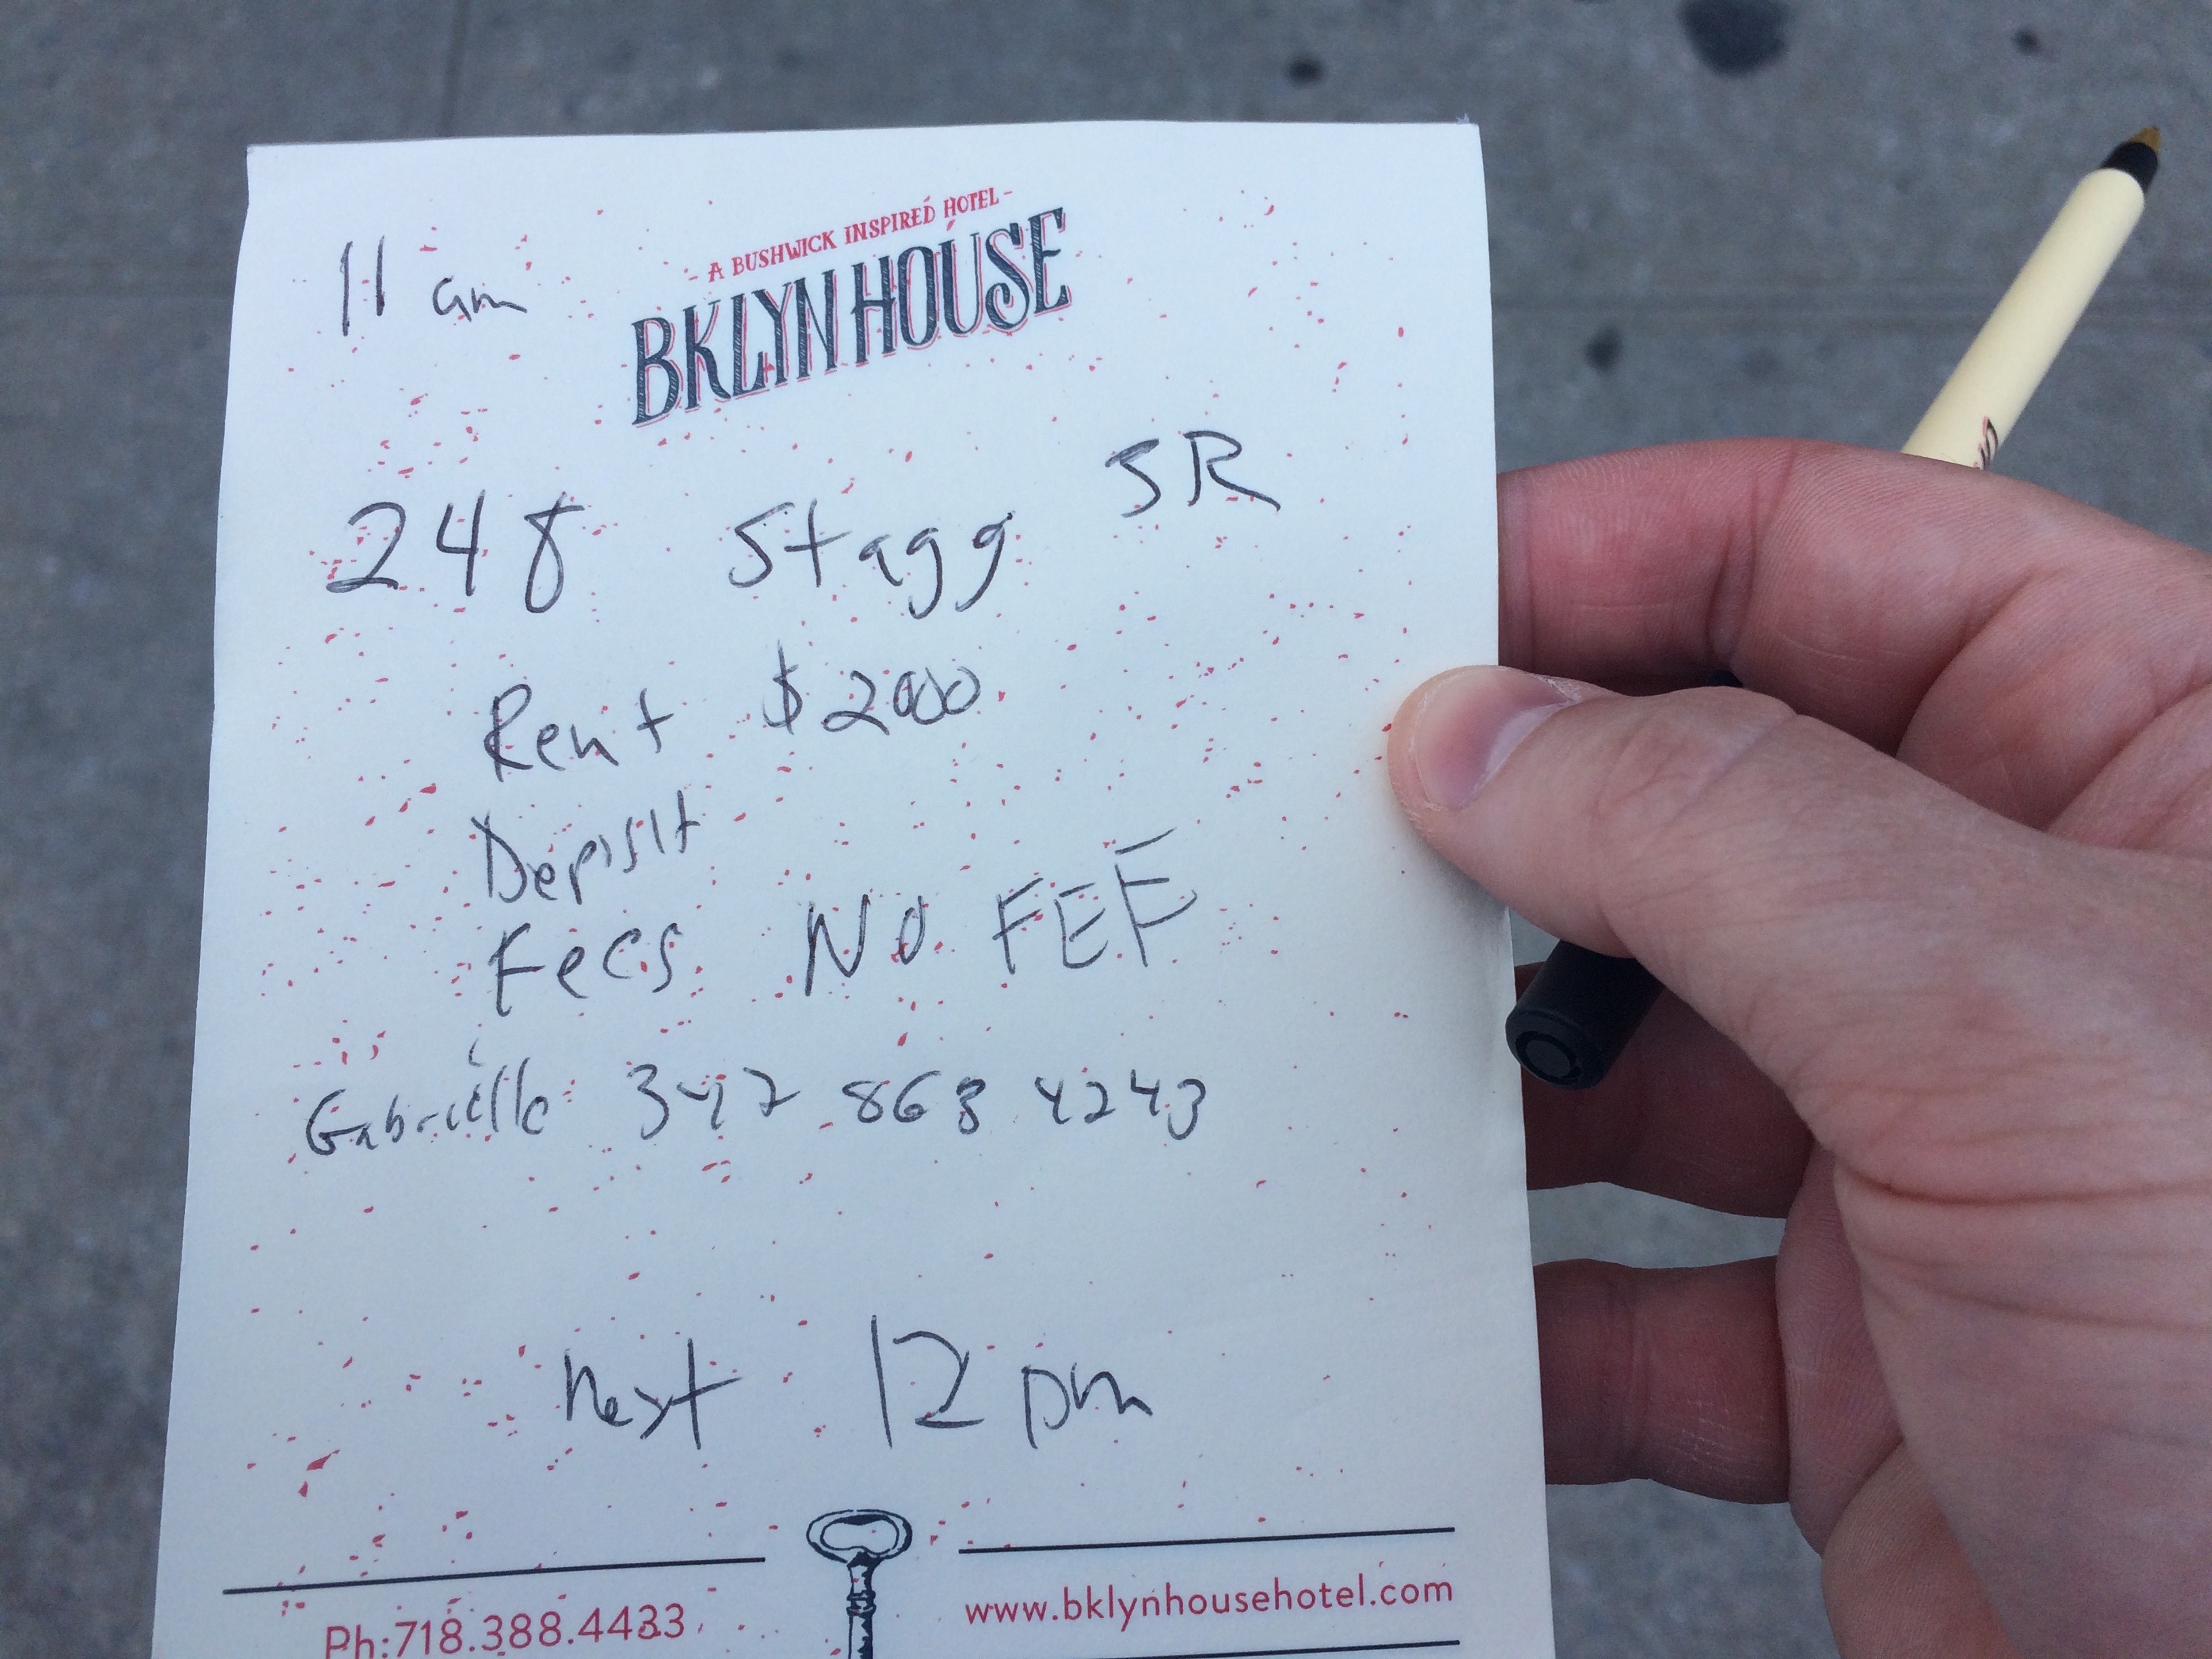 - A BUSHWICK INSPIRED HOTEL -
BKLYN HOUSE
11 am
248 Stagg
Rent $2000
Deposit
Fees NO FEE
Gabrielle 347 868 4243
next 12 pm
Ph:718.388.4433
www.bklynhousehotel.com